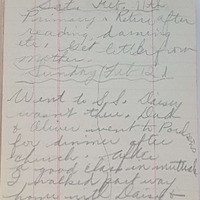 Sat. Feb. 11th
Primary & Retire after
reading, darning
etc, Get letter from
mother.
Sunday Feb 12
Went to S.S. Daisy
wasn't there, Dad
& Oliver went to
for dinner after
church.
a good class in mutual
I walked part way
home with Daisy